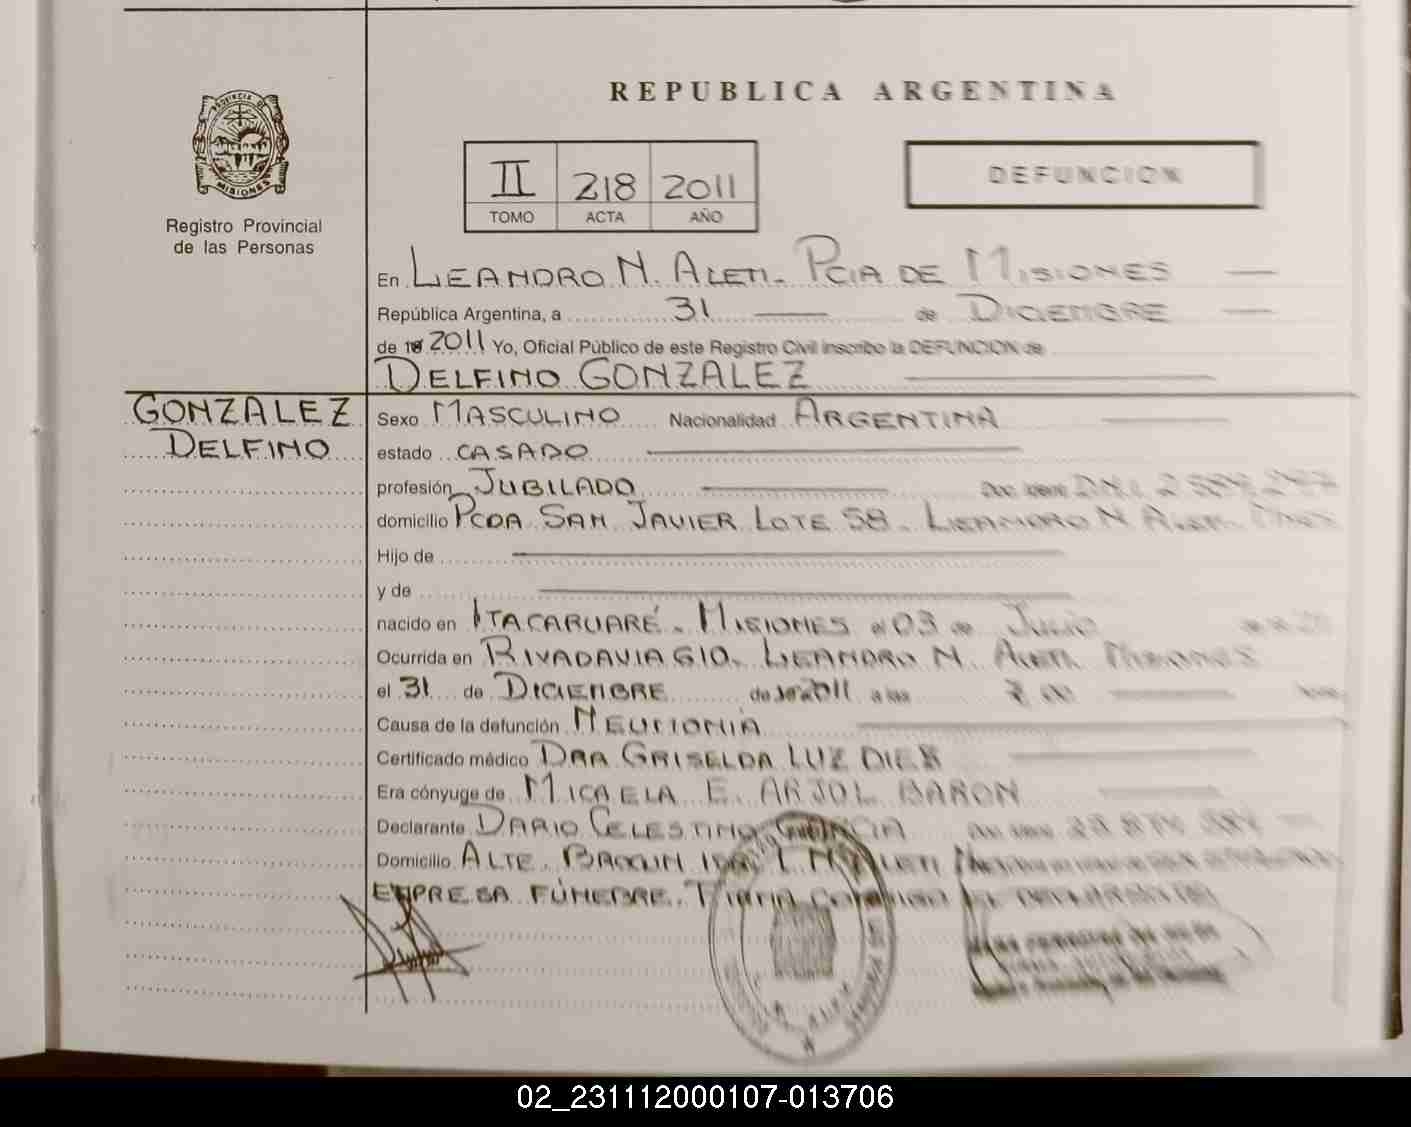 REPUBLICA ARGENTINA
PROVINCIA DE MISIONES
Registro Provincial
de las Personas
II 218 2011
TOMO ACTA AÑO
DEFUNCION
En LEANDRO N. ALEM. PCIA DE MISIONES
República Argentina, a 31 de DICIEMBRE
de 2011 Yo, Oficial Público de este Registro Civil inscribo la DEFUNCION de
DELFINO GONZALEZ
GONZALEZ
DELFINO
Sexo MASCULINO Nacionalidad ARGENTINA
estado CASADO
profesión JUBILADO Doc. Ident. D.N.I.
domicilio PCDA SAN JAVIER LOTE 58. LEANDRO N ALEM. MNES
Hijo de
y de
nacido en ITACARUARÉ. MISIONES el 03 de JULIO de
Ocurrida en RIVADAVIA 610. LEANDRO N. ALEM. MISIONES
el 31 de DICIEMBRE de 2011 a las
Causa de la defunción NEUMONIA
Certificado médico DRA GRISELDA LUZ DIEB
Era cónyuge de MICAELA E. ARJOL BARON
Declarante DARIO CELESTINO GARCIA Doc. Ident.
Domicilio ALTE. BROWN L. N. ALEM
EMPRESA FÚNEBRE. FIRMA CONMIGO EL DECLARANTE
02_231112000107-013706